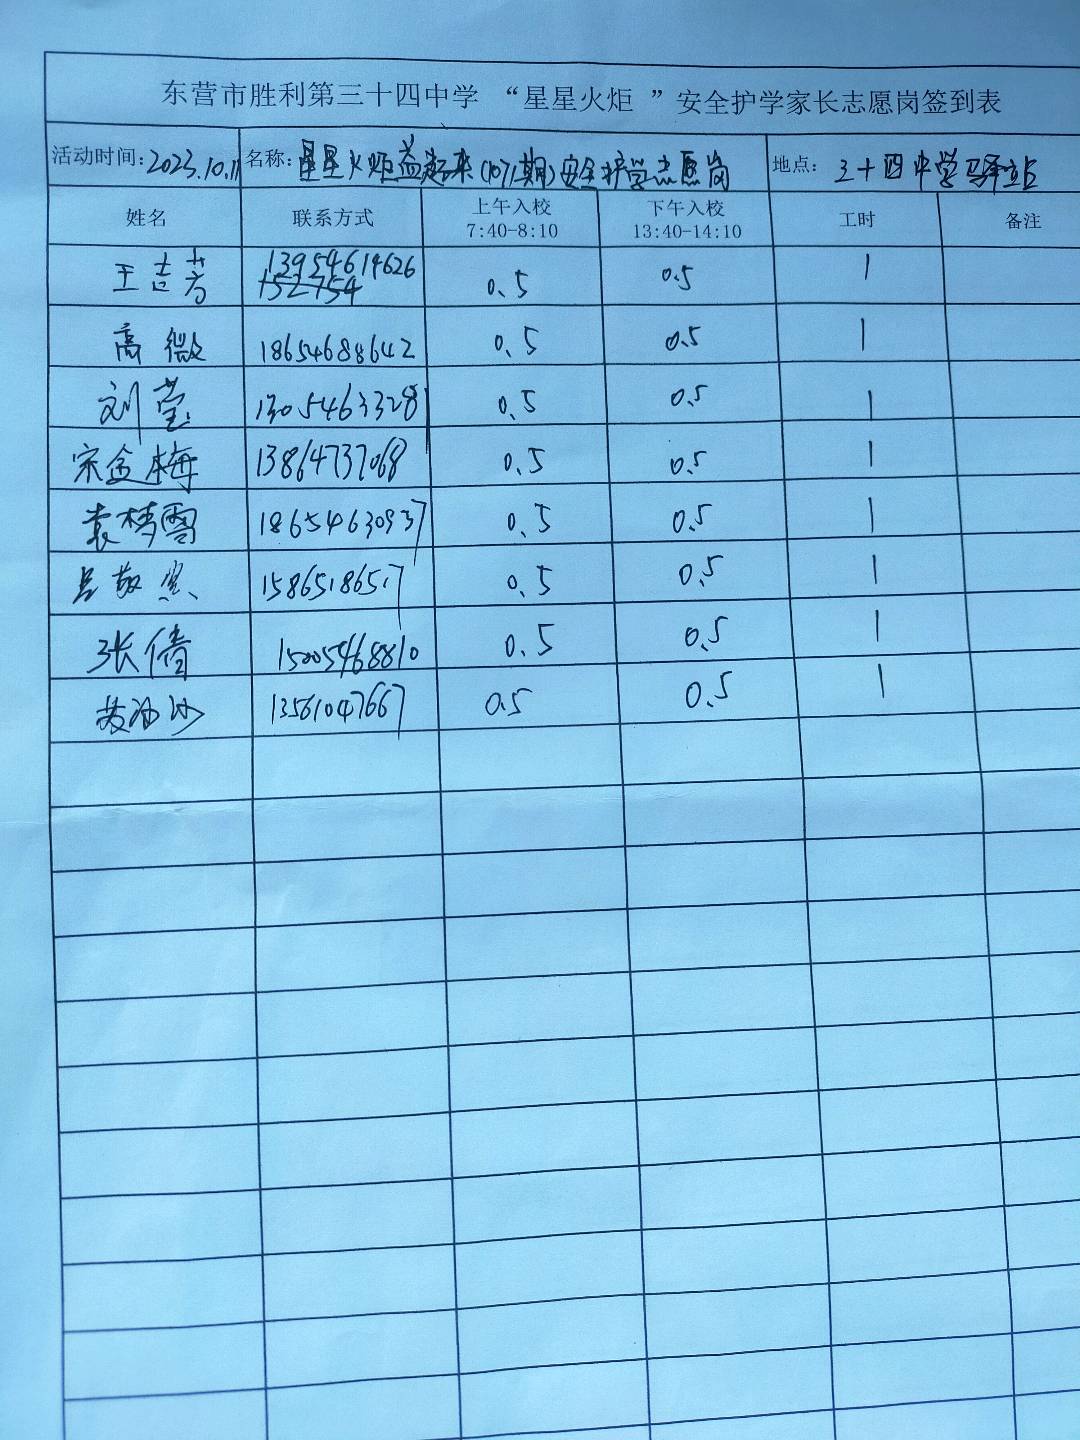 东营市胜利第三十四中学 “星星火炬 ”安全护学家长志愿岗签到表
活动时间：2023.10.11 名称：星星火炬益起来(1071期)安全护学志愿岗 地点：三十四中学驿站
姓名 联系方式 上午入校 7:40-8:10 下午入校 13:40-14:10 工时 备注
王吉芳 13954614626 0.5 0.5 1
高微 18654688642 0.5 0.5 1
刘莹 13054633281 0.5 0.5 1
宋金梅 13864737068 0.5 0.5 1
袁梦雪 18654630937 0.5 0.5 1
吕敬 15865186517 0.5 0.5 1
张倩 15005468810 0.5 0.5 1
13561047667 0.5 0.5 1